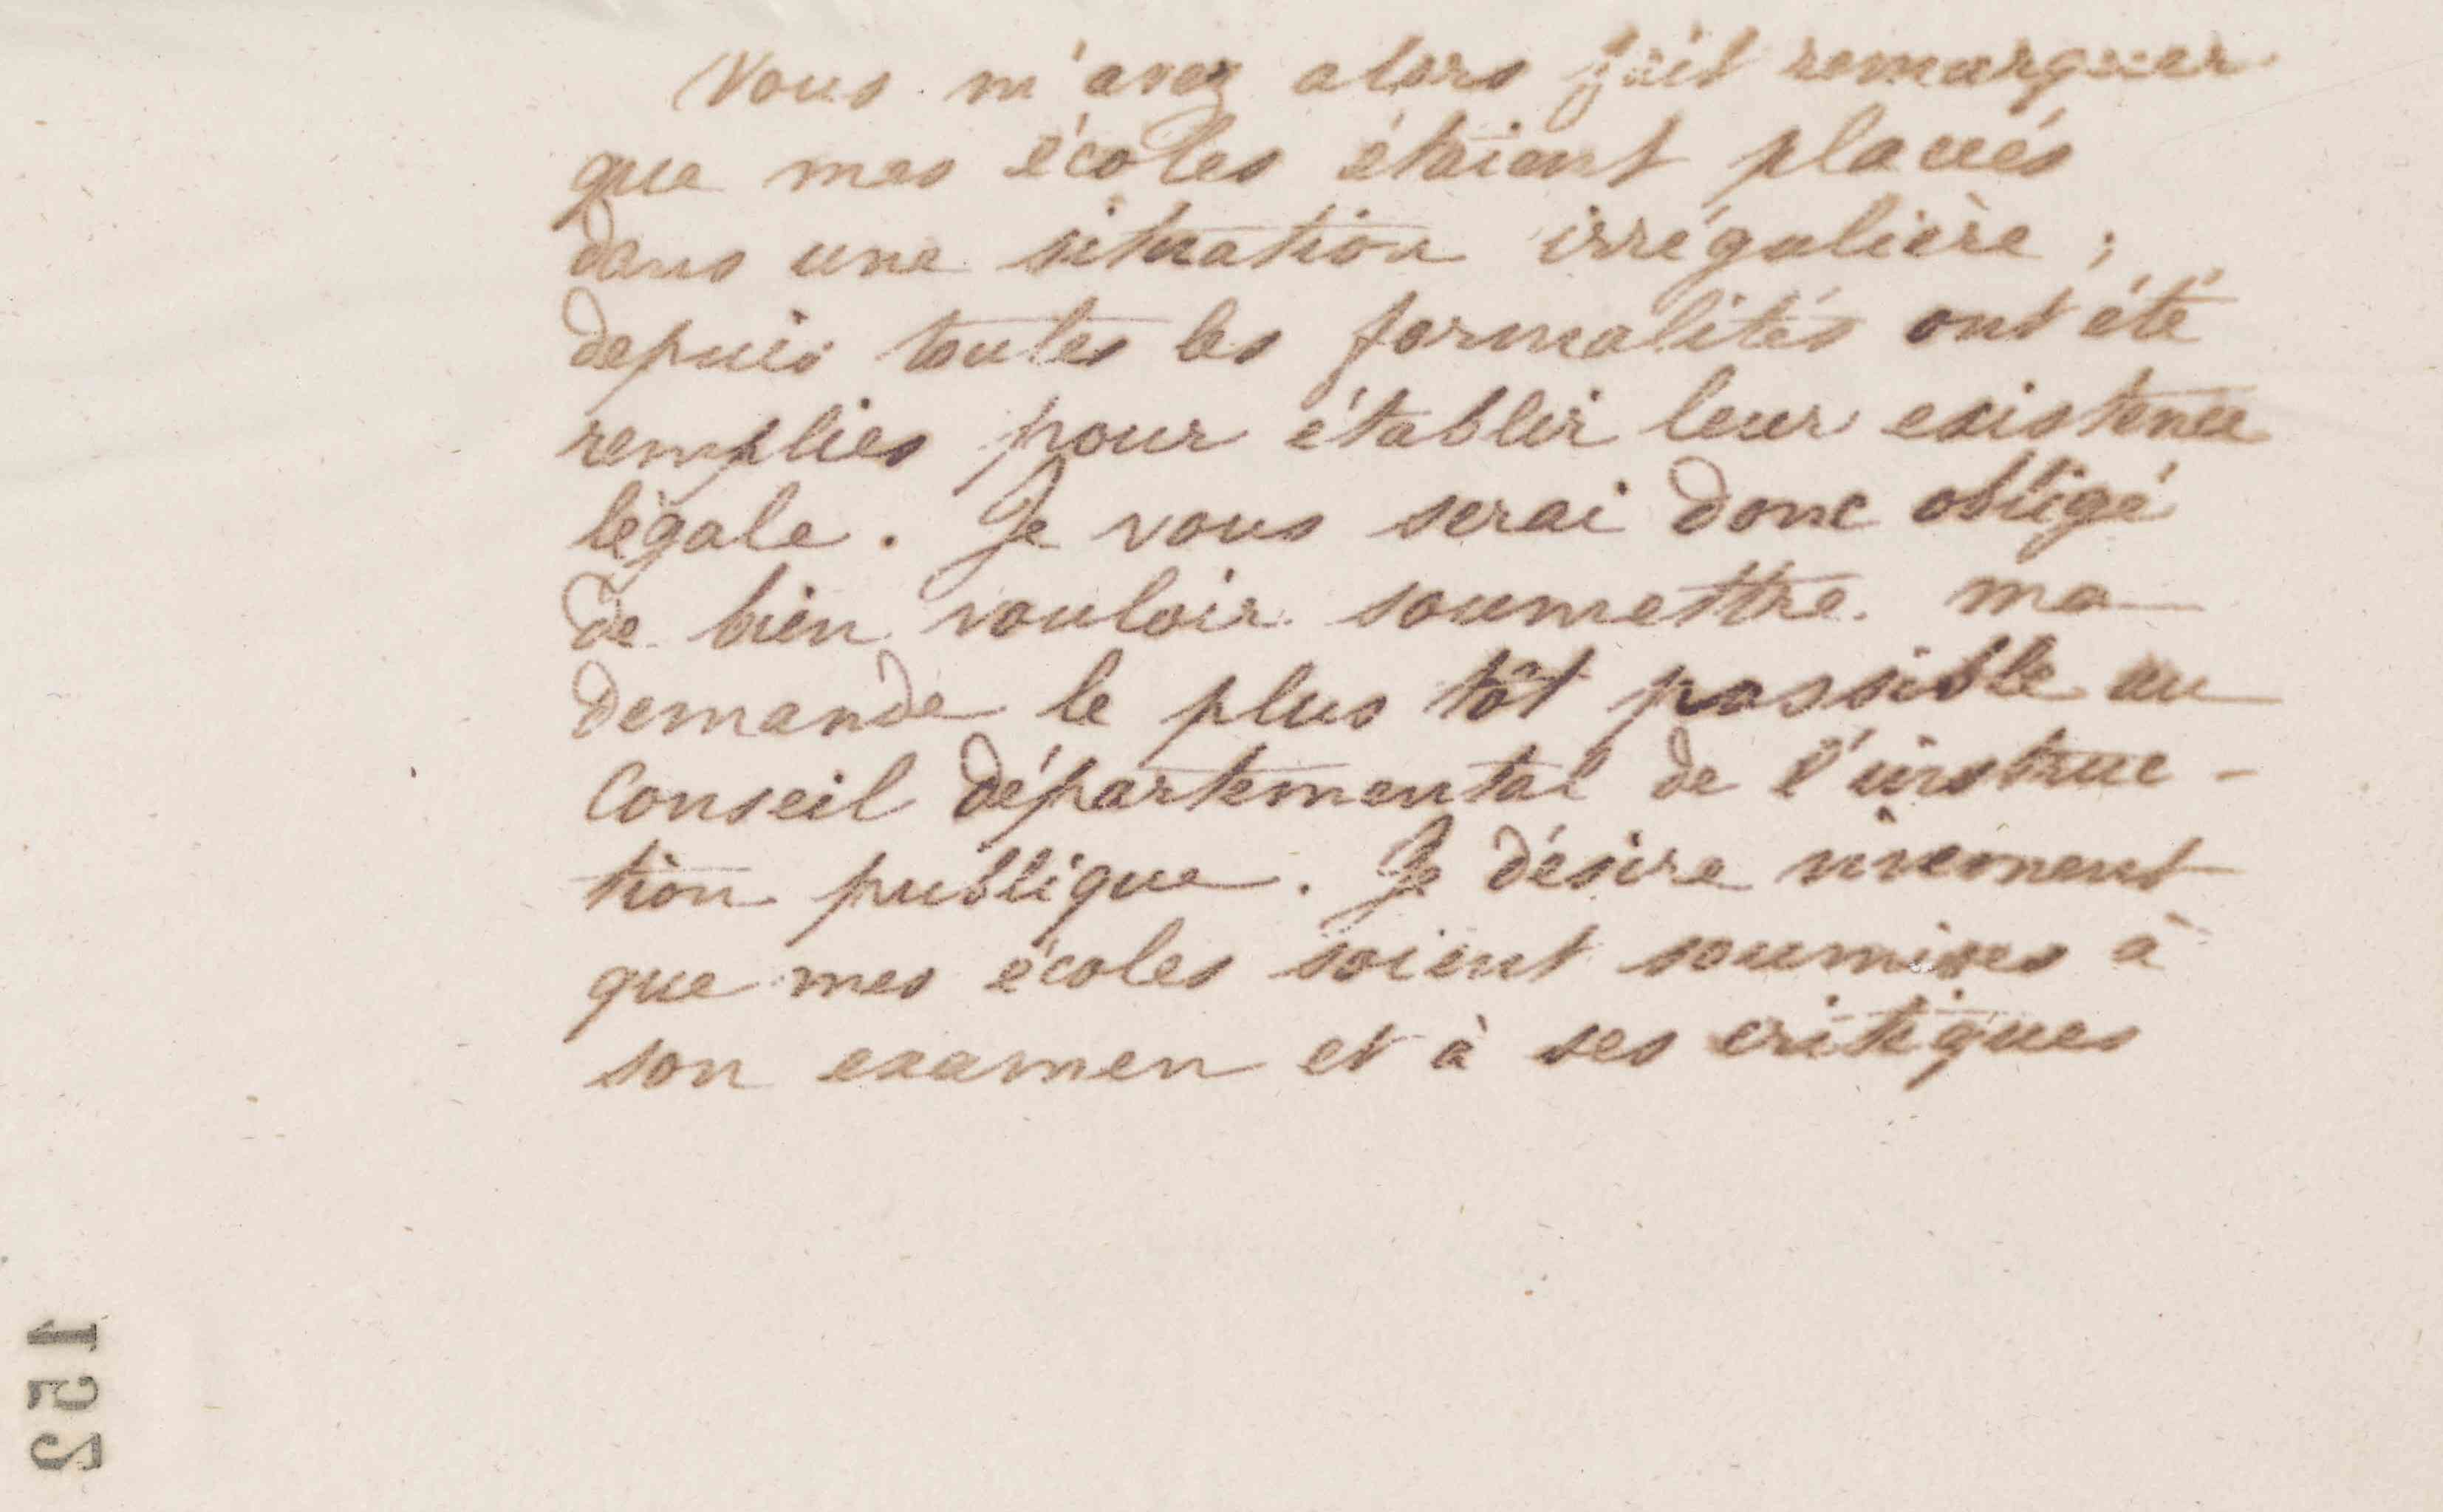 Vous m'avez alors fait remarquer
que mes écoles étaient placées
dans une situation irrégulière ;
depuis toutes les formalités ont été
remplies pour établir leur existence
légale. Je vous serai donc obligé
de bien vouloir soumettre ma
demande le plus tôt possible au
Conseil départemental de l'instruc-
tion publique. Je désire vivement
que mes écoles soient soumises à
son examen et à ses critiques
152